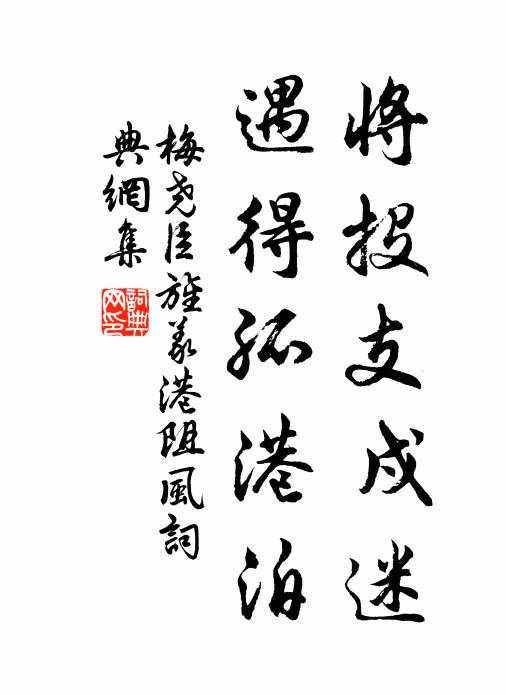 將投支戍迷
遇得孤港泊
梅尧臣旌義港阻風詞
典網集
詞典
网印